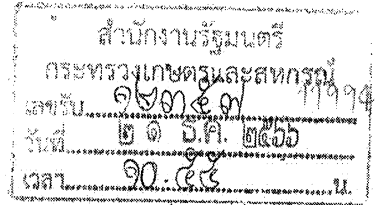 สำนักงานรัฐมนตรี
กระทรวงเกษตรและสหกรณ์
เลขรับ ๑๒๓๕๗
วันที่ ๒ ๑ ธ.ค. ๒๕๖๖
เวลา ๑๐.๔๕ น.